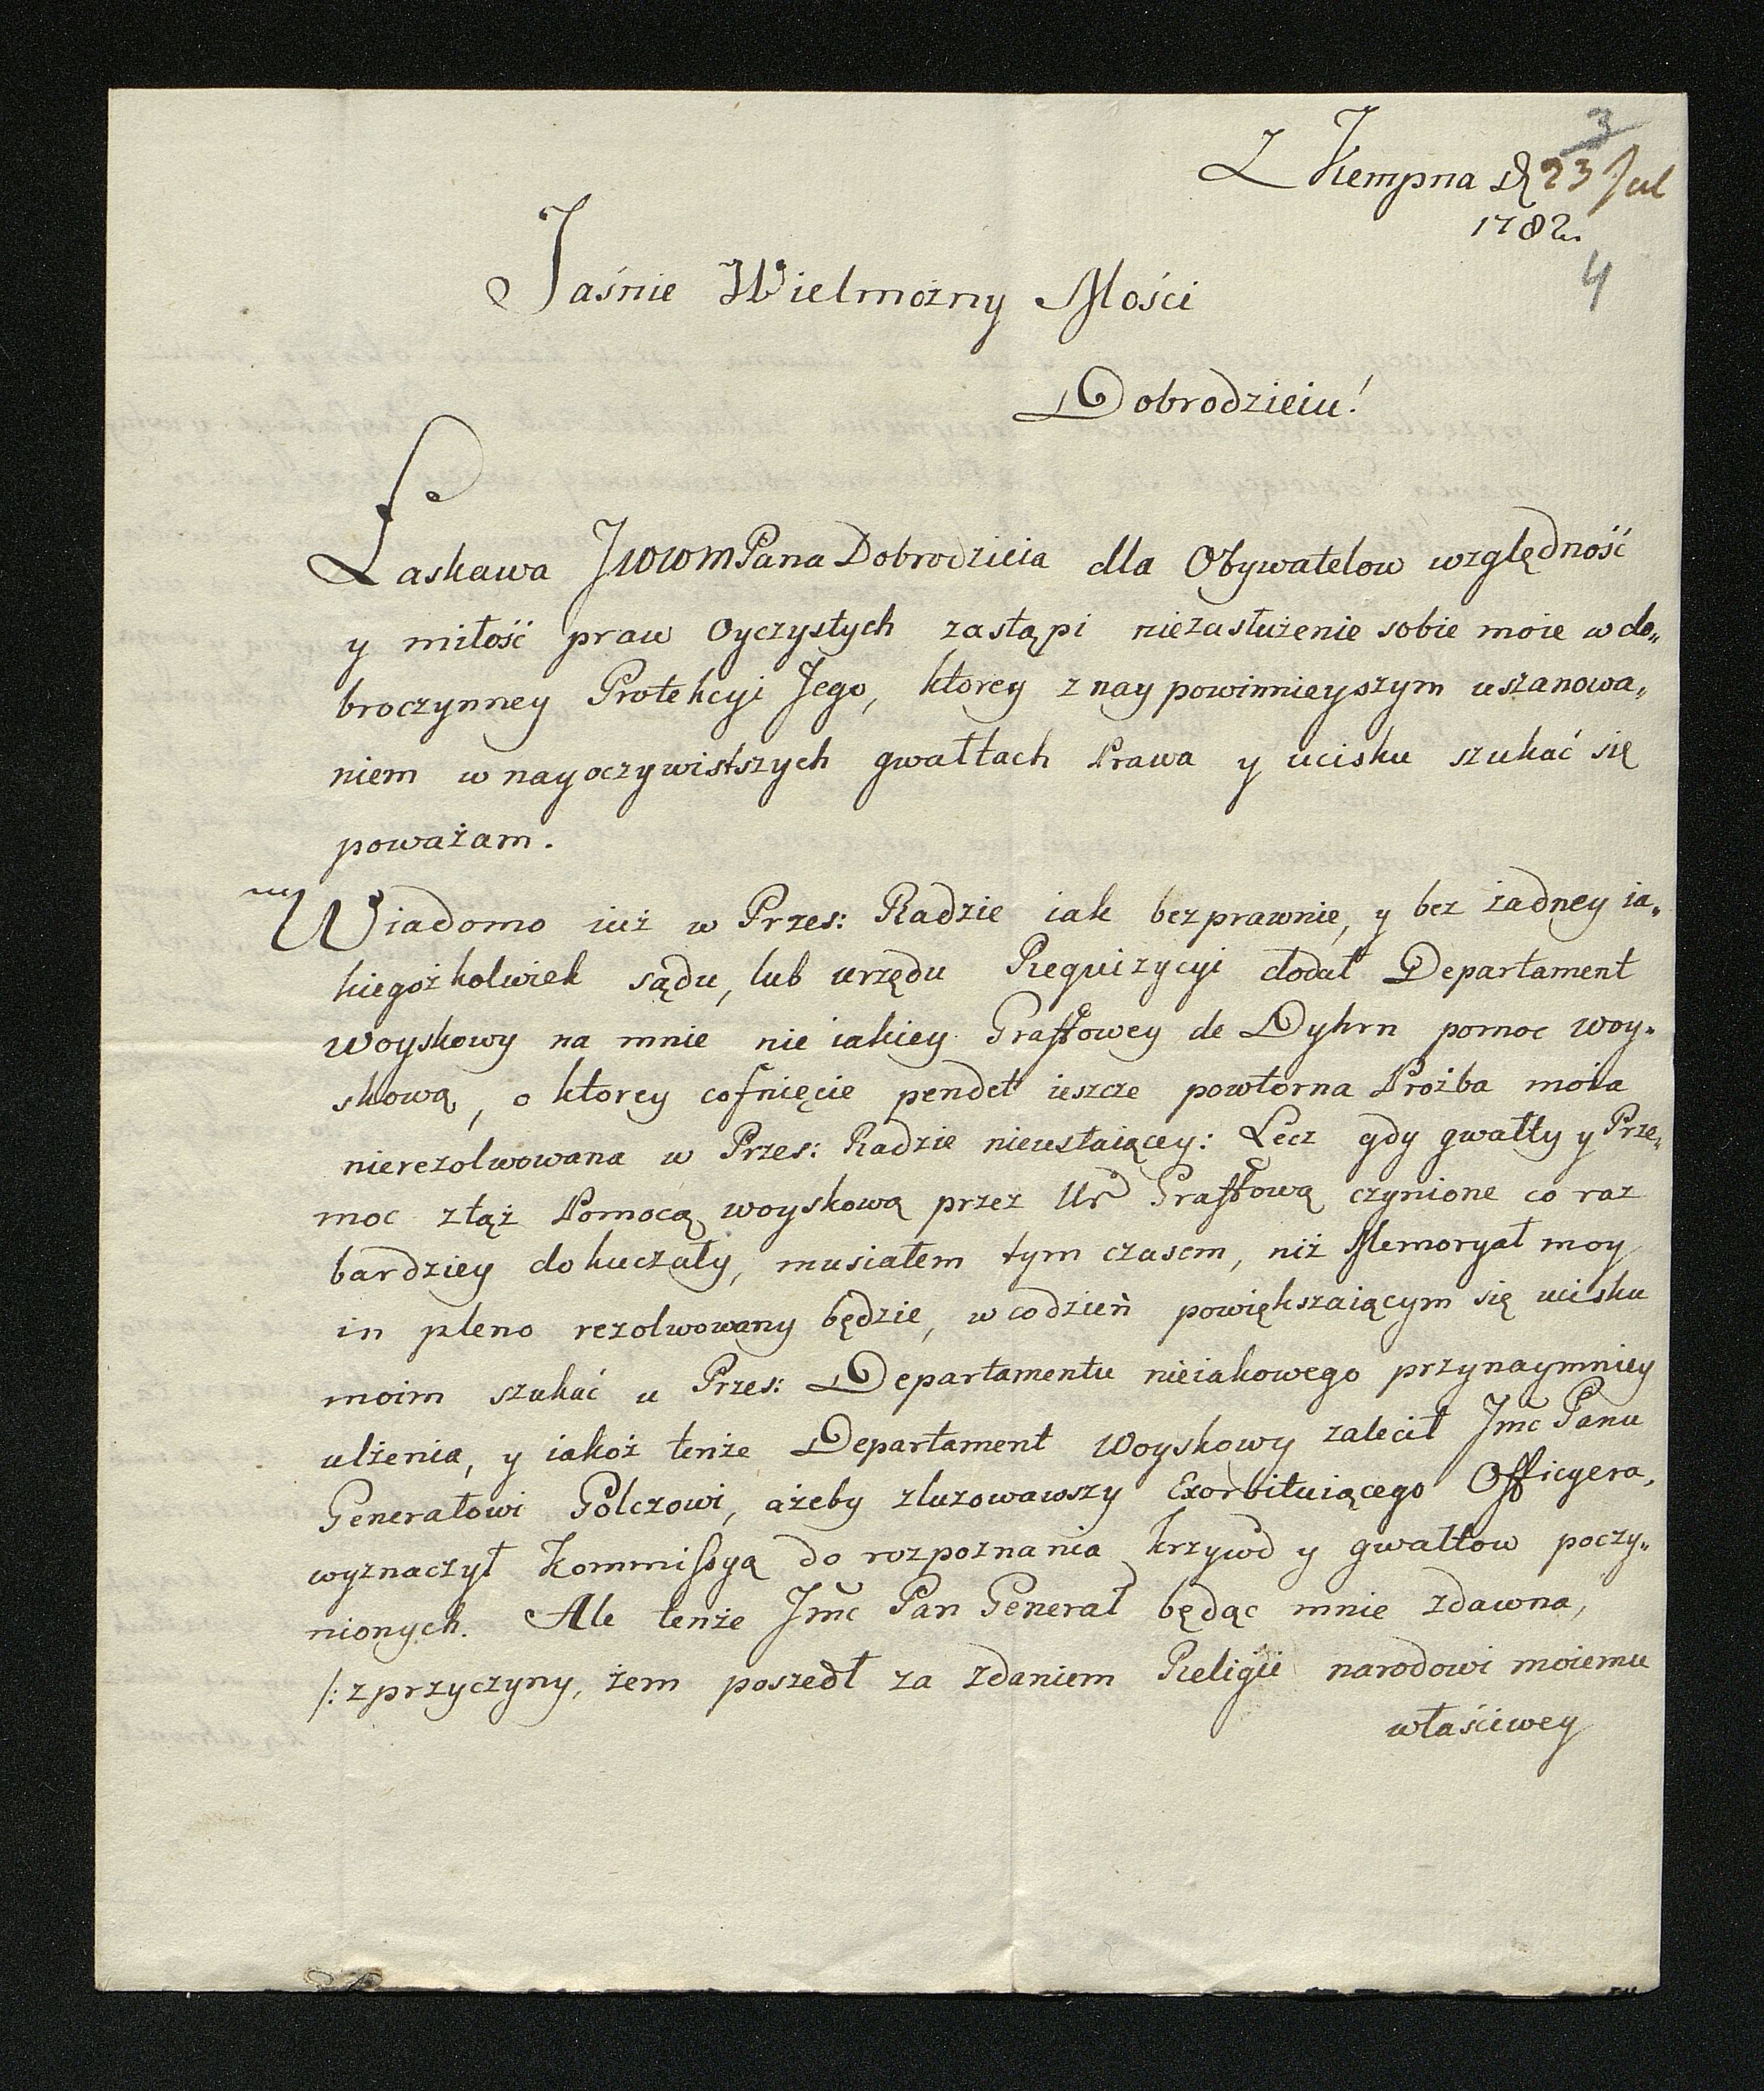 3
Z Kempna d 23 Jul
1782.
4
Jaśnie Wielmożny Mości
Dobrodzieiu!
Łaskawa JWWMPana Dobrodzieia dla Obywatelow względność
y miłość praw Oyczystych zastąpi niezasłużenie sobie moie w do„
broczynney Protekcyi Jego, ktorey z naypowinnieyszym uszanowa„
niem w nayoczywistszych gwałtach Prawa y ucisku szukać się
poważam.
Wiadomo iuż w Przes: Radzie iak bezprawnie, y bez żadney ia„
kiegożkolwiek sądu, lub urzędu Requizycyi dodał Departament
Woyskowy na mnie nie iakiey Graffowey de Dyhrn pomoc woy„
skową, o ktorey cofnięcie pendet ieszcze powtorna Prożba moia
nierezolwowana w Przes: Radzie nieustaiącey: Lecz gdy gwałty y Prze„
moc z tąż Pomocą woyskową przez Ur Graffową czynione co raz
bardziey dokuczały, musiałem tym czasem, niż Memoryał moy
in pleno rezolwowany będzie, w codzień powiększaiącym się ucisku
moim szukać u Przes: Departamentu nieiakowego przynaymniey
ulżenia, y iakoż tenże Departament Woyskowy zalecił Jmć Panu
Generałowi Golczowi, ażeby zluzowawszy Exorbituiącego Officyera,
wyznaczył Kommissyą do rozpoznania krzywd y gwałtow poczy„
nionych. Ale tenże Jmć Pan Generał będąc mnie zdawna,
/: z przyczyny, żem poszedł za zdaniem Religii narodowi moiemu
właściwey